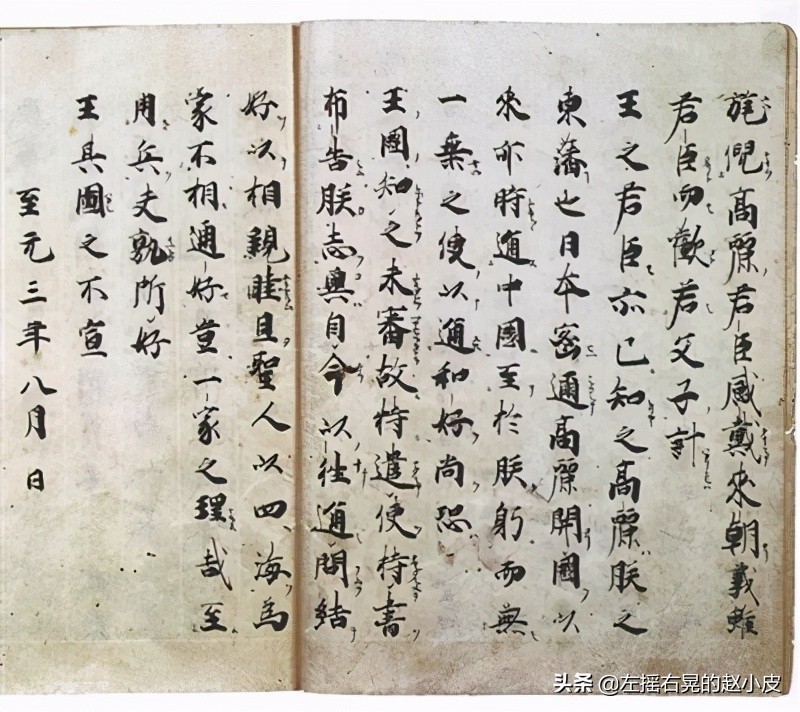 旄倪高麗君臣感戴來朝義雖
君臣而歡若父子計
王之君臣亦已知之高麗朕之
東藩也日本密邇高麗開國以
來亦時通中國至於朕躬而無
一乗之使以通和好尚恐
王國知之未審故特遣使持書
布告朕志興自今以往通問結
好以相親睦且聖人以四海為
家不相通好豈一家之理哉至
用兵夫孰所好
王其圖之不宣
至元三年八月 日
头条 @左摇右晃的赵小皮